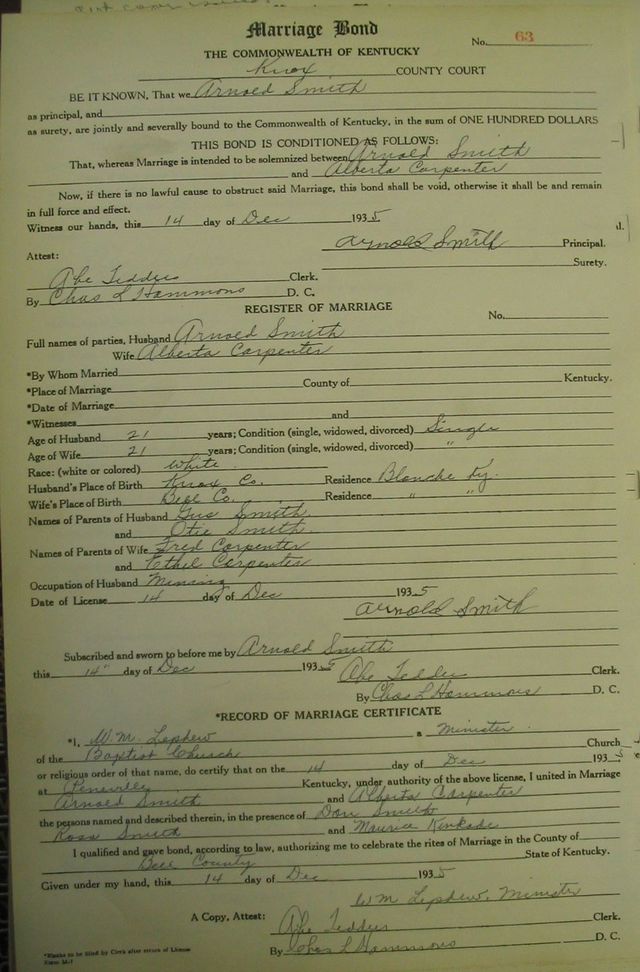 Marriage Bond
No. 63
THE COMMONWEALTH OF KENTUCKY
Knox COUNTY COURT
BE IT KNOWN, That we Arnold Smith
as principal, and
as surety, are jointly and severally bound to the Commonwealth of Kentucky, in the sum of ONE HUNDRED DOLLARS
THIS BOND IS CONDITIONED AS FOLLOWS:
That, whereas Marriage is intended to be solemnized between Arnold Smith
and Alberta Carpenter
Now, if there is no lawful cause to obstruct said Marriage, this bond shall be void, otherwise it shall be and remain
in full force and effect.
Witness our hands, this 14 day of Dec 1935
Arnold Smith Principal.
Attest: Surety.
Abe Tedders Clerk.
By Chas L Hammons D. C.
REGISTER OF MARRIAGE
No.
Full names of parties, Husband Arnold Smith
Wife Alberta Carpenter
*By Whom Married
*Place of Marriage County of Kentucky.
*Date of Marriage
*Witnesses and
Age of Husband 21 years; Condition (single, widowed, divorced) Single
Age of Wife 21 years; Condition (single, widowed, divorced) "
Race: (white or colored) White
Husband's Place of Birth Knox Co. Residence Blanche Ky.
Wife's Place of Birth Bell Co. Residence " "
Names of Parents of Husband Gus Smith
and Otie Smith
Names of Parents of Wife Fred Carpenter
and Ethel Carpenter
Occupation of Husband Mining
Date of License 14 day of Dec 1935
Arnold Smith
Subscribed and sworn to before me by Arnold Smith
this 14" day of Dec 1935 Abe Tedders Clerk.
By Chas L Hammons D. C.
*RECORD OF MARRIAGE CERTIFICATE
*I, W.M. Lephew a Minister
of the Baptist Church Church
or religious order of that name, do certify that on the 14 day of Dec 1935
at Pineville Kentucky, under authority of the above license, I united in Marriage
Arnold Smith and Alberta Carpenter
the persons named and described therein, in the presence of Don Smith
Ross Smith and Maurice Kinkade
I qualified and gave bond, according to law, authorizing me to celebrate the rites of Marriage in the County of
Bell County State of Kentucky.
Given under my hand, this 14 day of Dec 1935
W M Lephew, Minister
A Copy, Attest: Abe Tedders Clerk.
By Chas L Hammons D. C.
*Blanks to be filled by Clerk after return of License